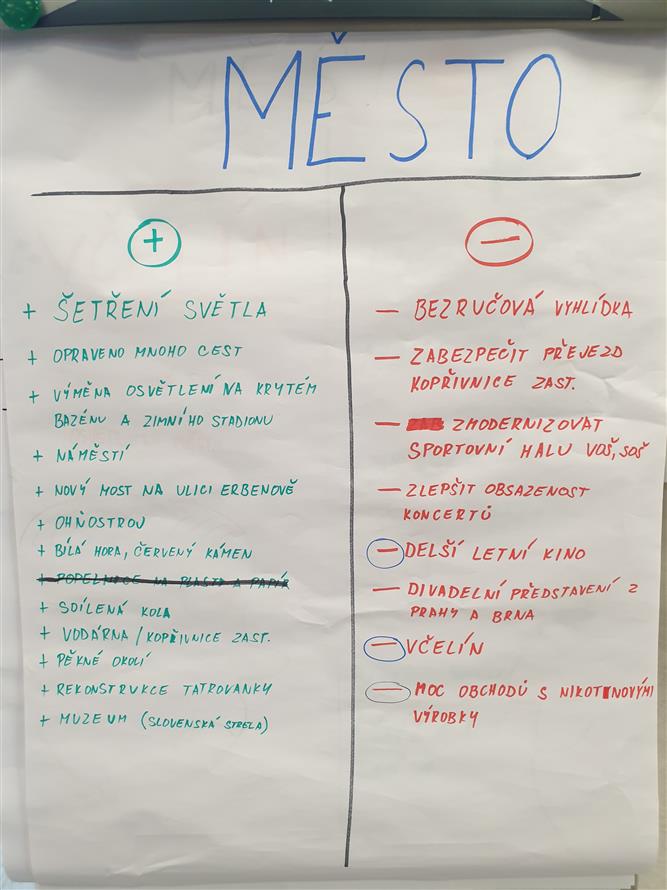 MĚSTO
+
+ ŠETŘENÍ SVĚTLA
+ OPRAVENO MNOHO CEST
+ VÝMĚNA OSVĚTLENÍ NA KRYTÉM
BAZÉNU A ZIMNÍHO STADIONU
+ NÁMĚSTÍ
+ NOVÝ MOST NA ULICI ERBENOVĚ
+ OHŇOSTROJ
+ BÍLÁ HORA, ČERVENÝ KÁMEN
+ POPELNICE NA PLASTY A PAPÍR
+ SDÍLENÁ KOLA
+ VODÁRNA / KOPŘIVNICE ZAST.
+ PĚKNÉ OKOLÍ
+ REKONSTRUKCE TATROVANKY
+ MUZEUM (SLOVENSKÁ STRELA)
–
– BEZRUČOVÁ VYHLÍDKA
– ZABEZPEČIT PŘEJEZD
KOPŘIVNICE ZAST.
– ZMODERNIZOVAT
SPORTOVNÍ HALU VOŠ, SOŠ
– ZLEPŠIT OBSAZENOST
KONCERTŮ
– DELŠÍ LETNÍ KINO
– DIVADELNÍ PŘEDSTAVENÍ Z
PRAHY A BRNA
– VČELÍN
– MOC OBCHODŮ S NIKOTINOVÝMI
VÝROBKY